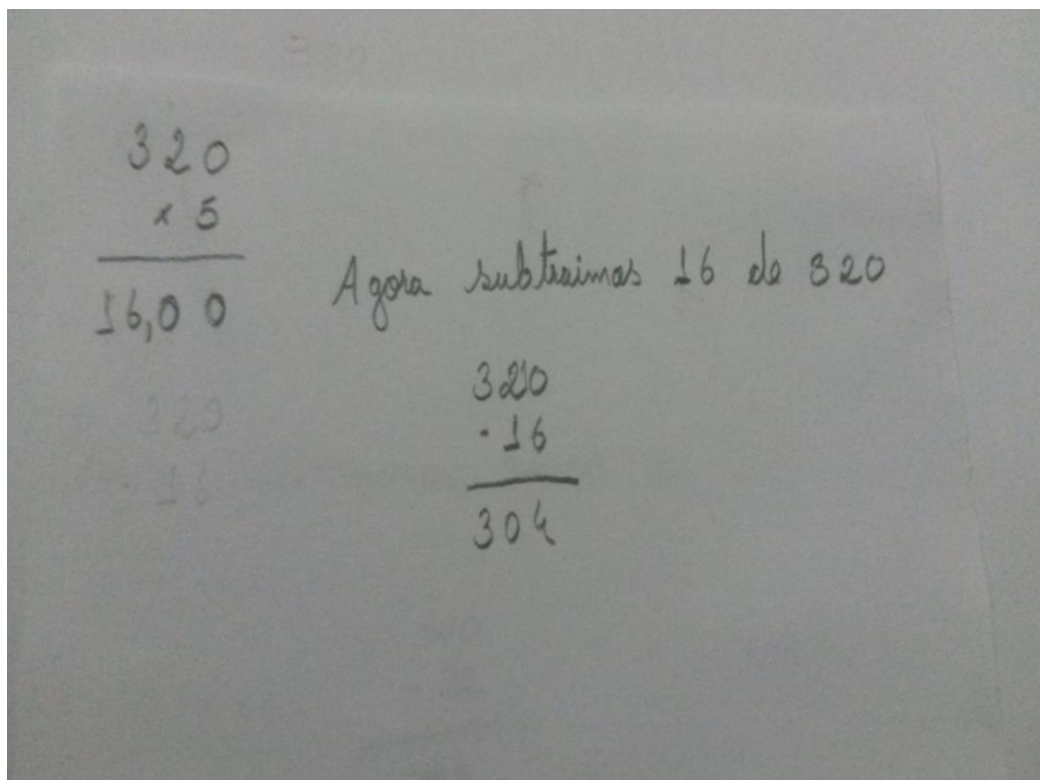 320
× 5
16,00
Agora subtraimos 16 de 320
320
- 16
304
320
16